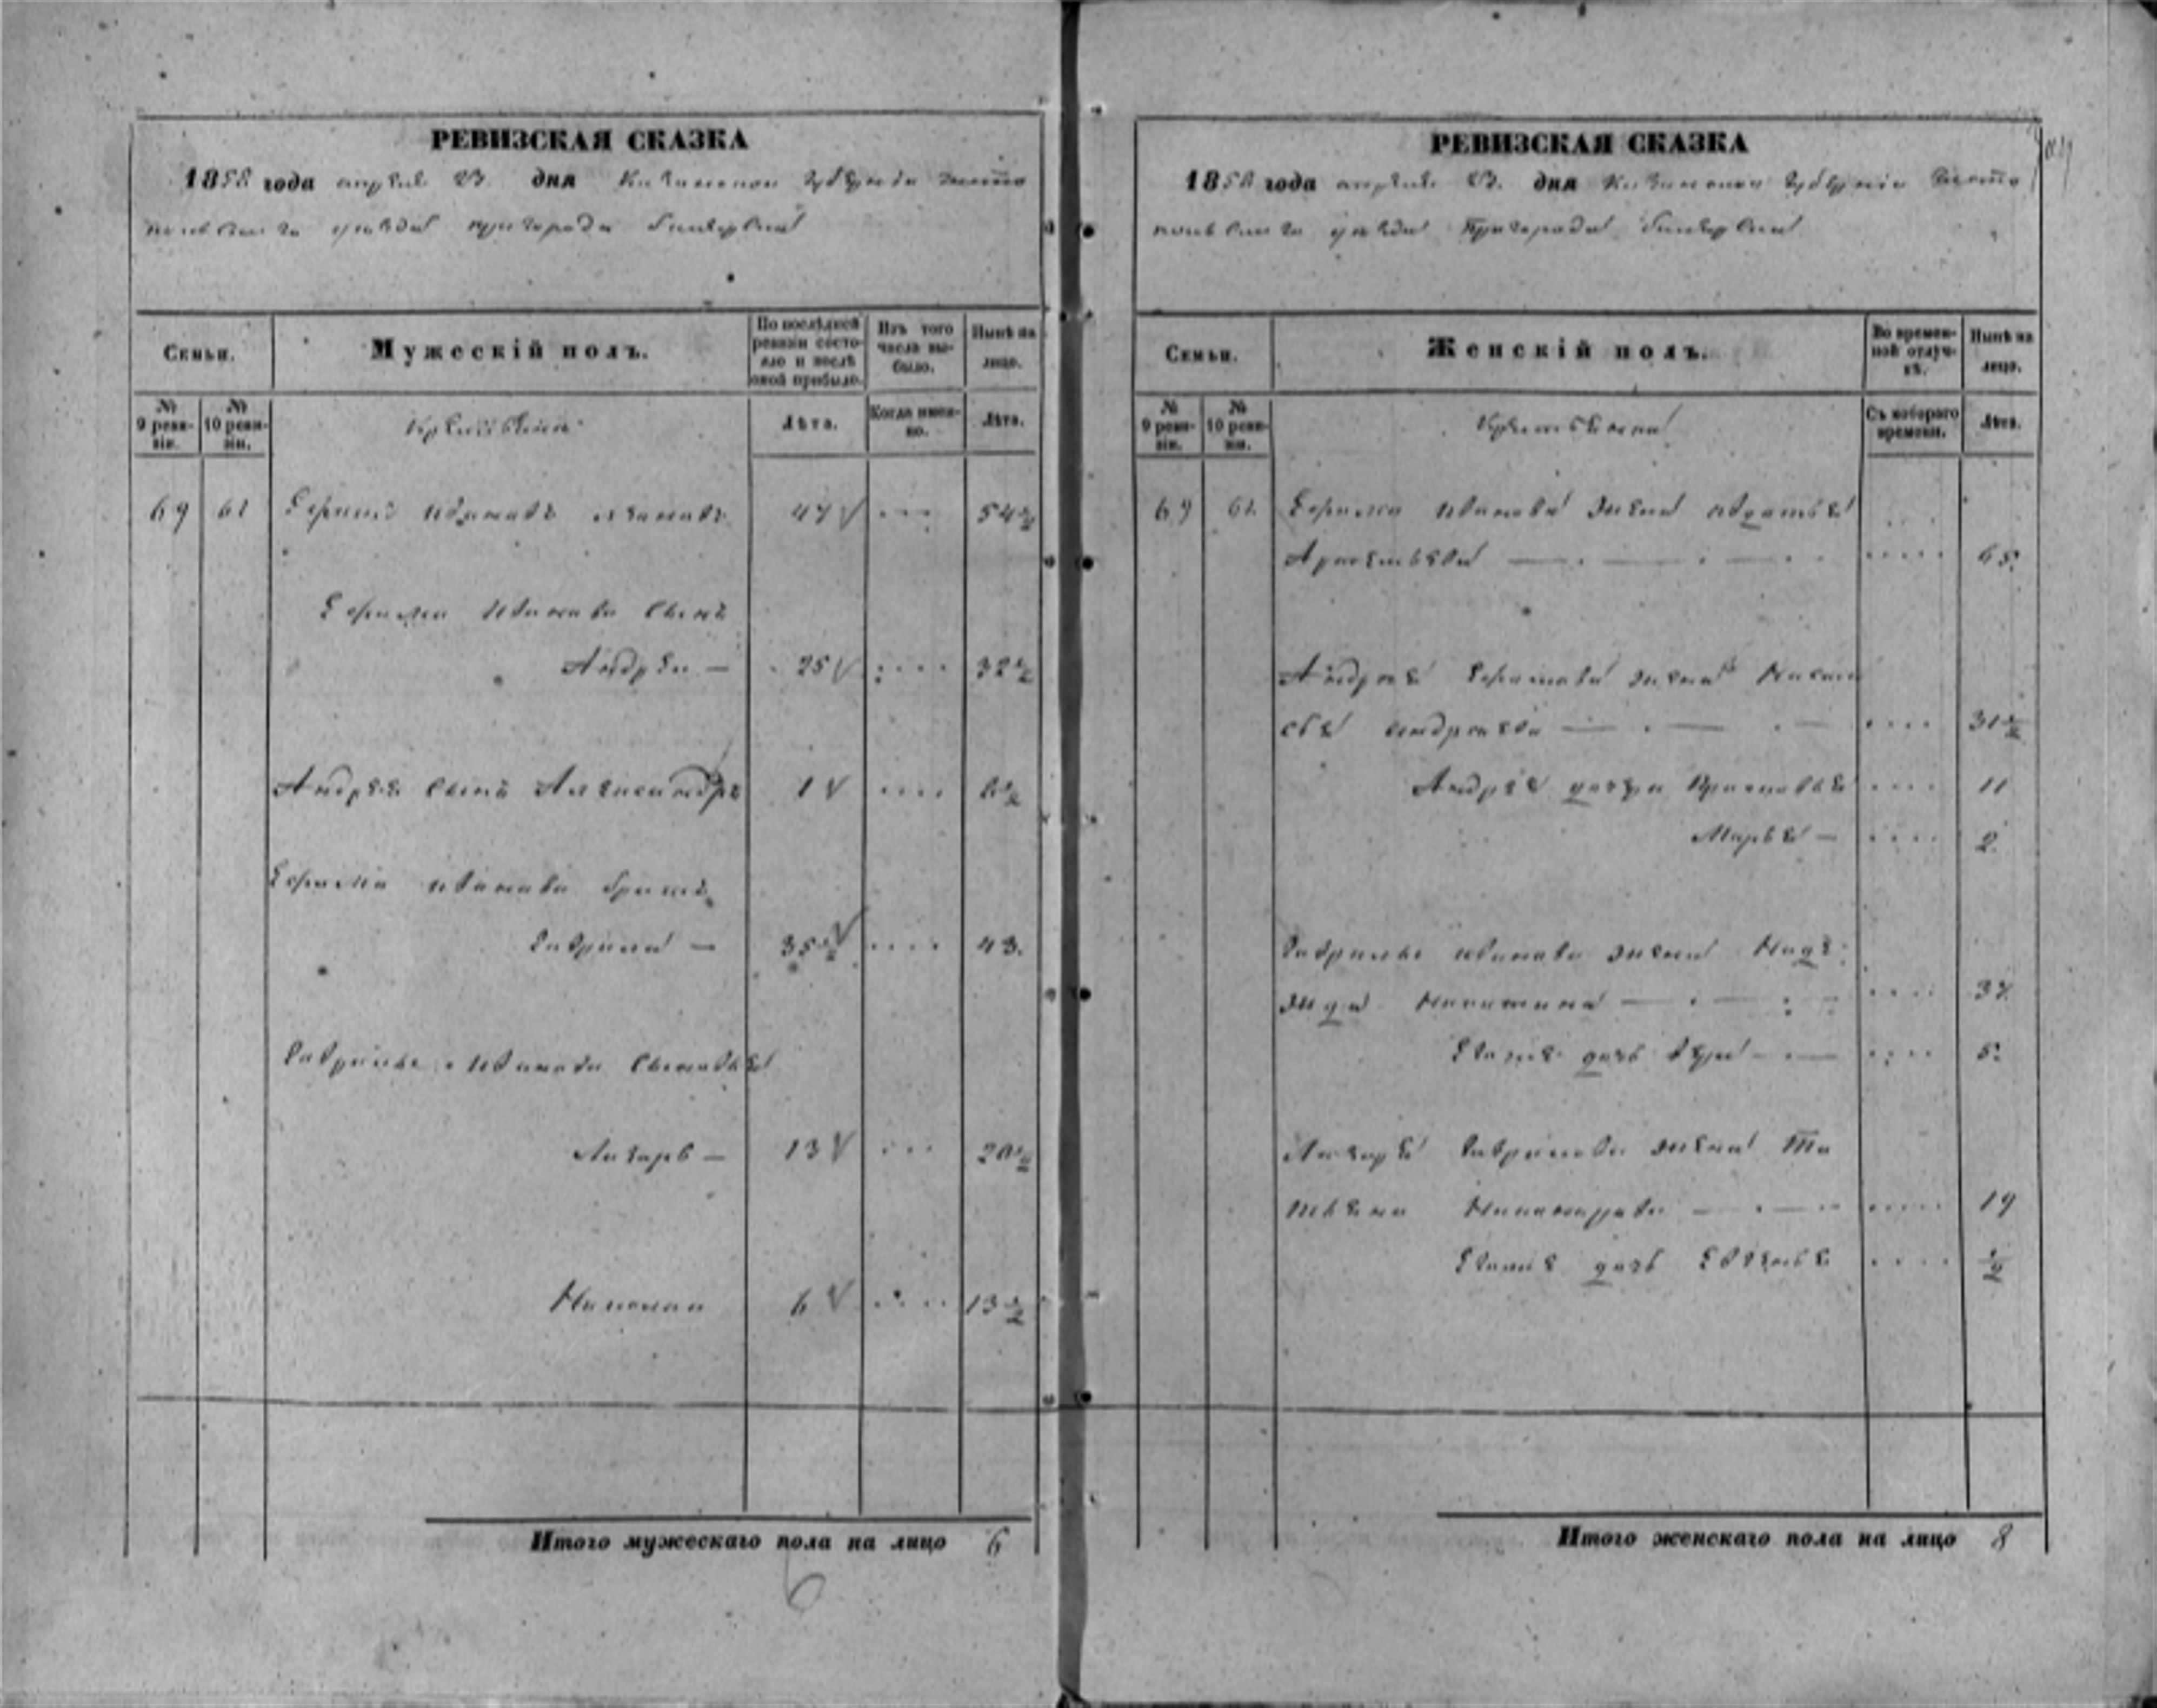 РЕВИЗСКАЯ СКАЗКА
1858 года апреля 23. дня Казанской губернии Чисто
польскаго уезда пригорода Билярска
Семьи.
Мужескій полъ.
По послѣдней ревизіи состояло и послѣ оной прибыло.
Изъ того числа выбыло.
Нынѣ на лицо.
№ 9 ревизіи.
№ 10 ревизіи.
Крестьяне
Лѣта.
Когда именно.
Лѣта.
69 Ефимъ Ивановъ 47 54½
Ефима Иванова сынъ
Андрей — 25 32½
Андрея сынъ Александръ 1 8½
Ефима Иванова братъ
Гаврила — 35½ 43.
Гаврилы Иванова сыновья
Лазарь — 13 20½
Николай 6 13½
Итого мужескаго пола на лицо 6
6
РЕВИЗСКАЯ СКАЗКА
1858 года апреля 23. дня Казанской губерніи Чисто
польскаго уезда Пригорода Билярска
Семьи.
Женскій полъ.
Во временной отлучкѣ.
Нынѣ на лицо.
№ 9 ревизіи.
№ 10 ревизіи.
Крестьяне
Съ котораго времени.
Лѣта.
69 Ефима Иванова жена
65
Андрея Ефимова жена Настась
31½
Андрея дочери 11
Марья — 2
Гаврилы Иванова жена Наде
жда Никитина 37
дочь 5
Лазаря Гаврилова жена Та
тьяна 19
дочь ½
Итого женскаго пола на лицо 8